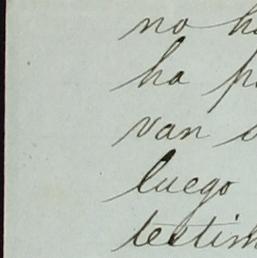 no h
ha p
van
luego
testim